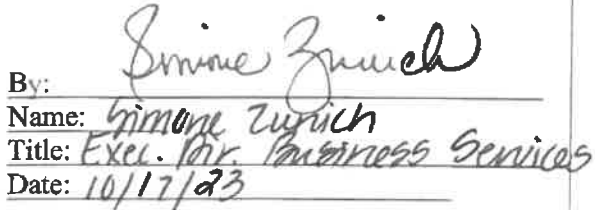 By: Simone Zurich
Name: Simone Zurich
Title: Exec. Dir. Business Services
Date: 10/17/23